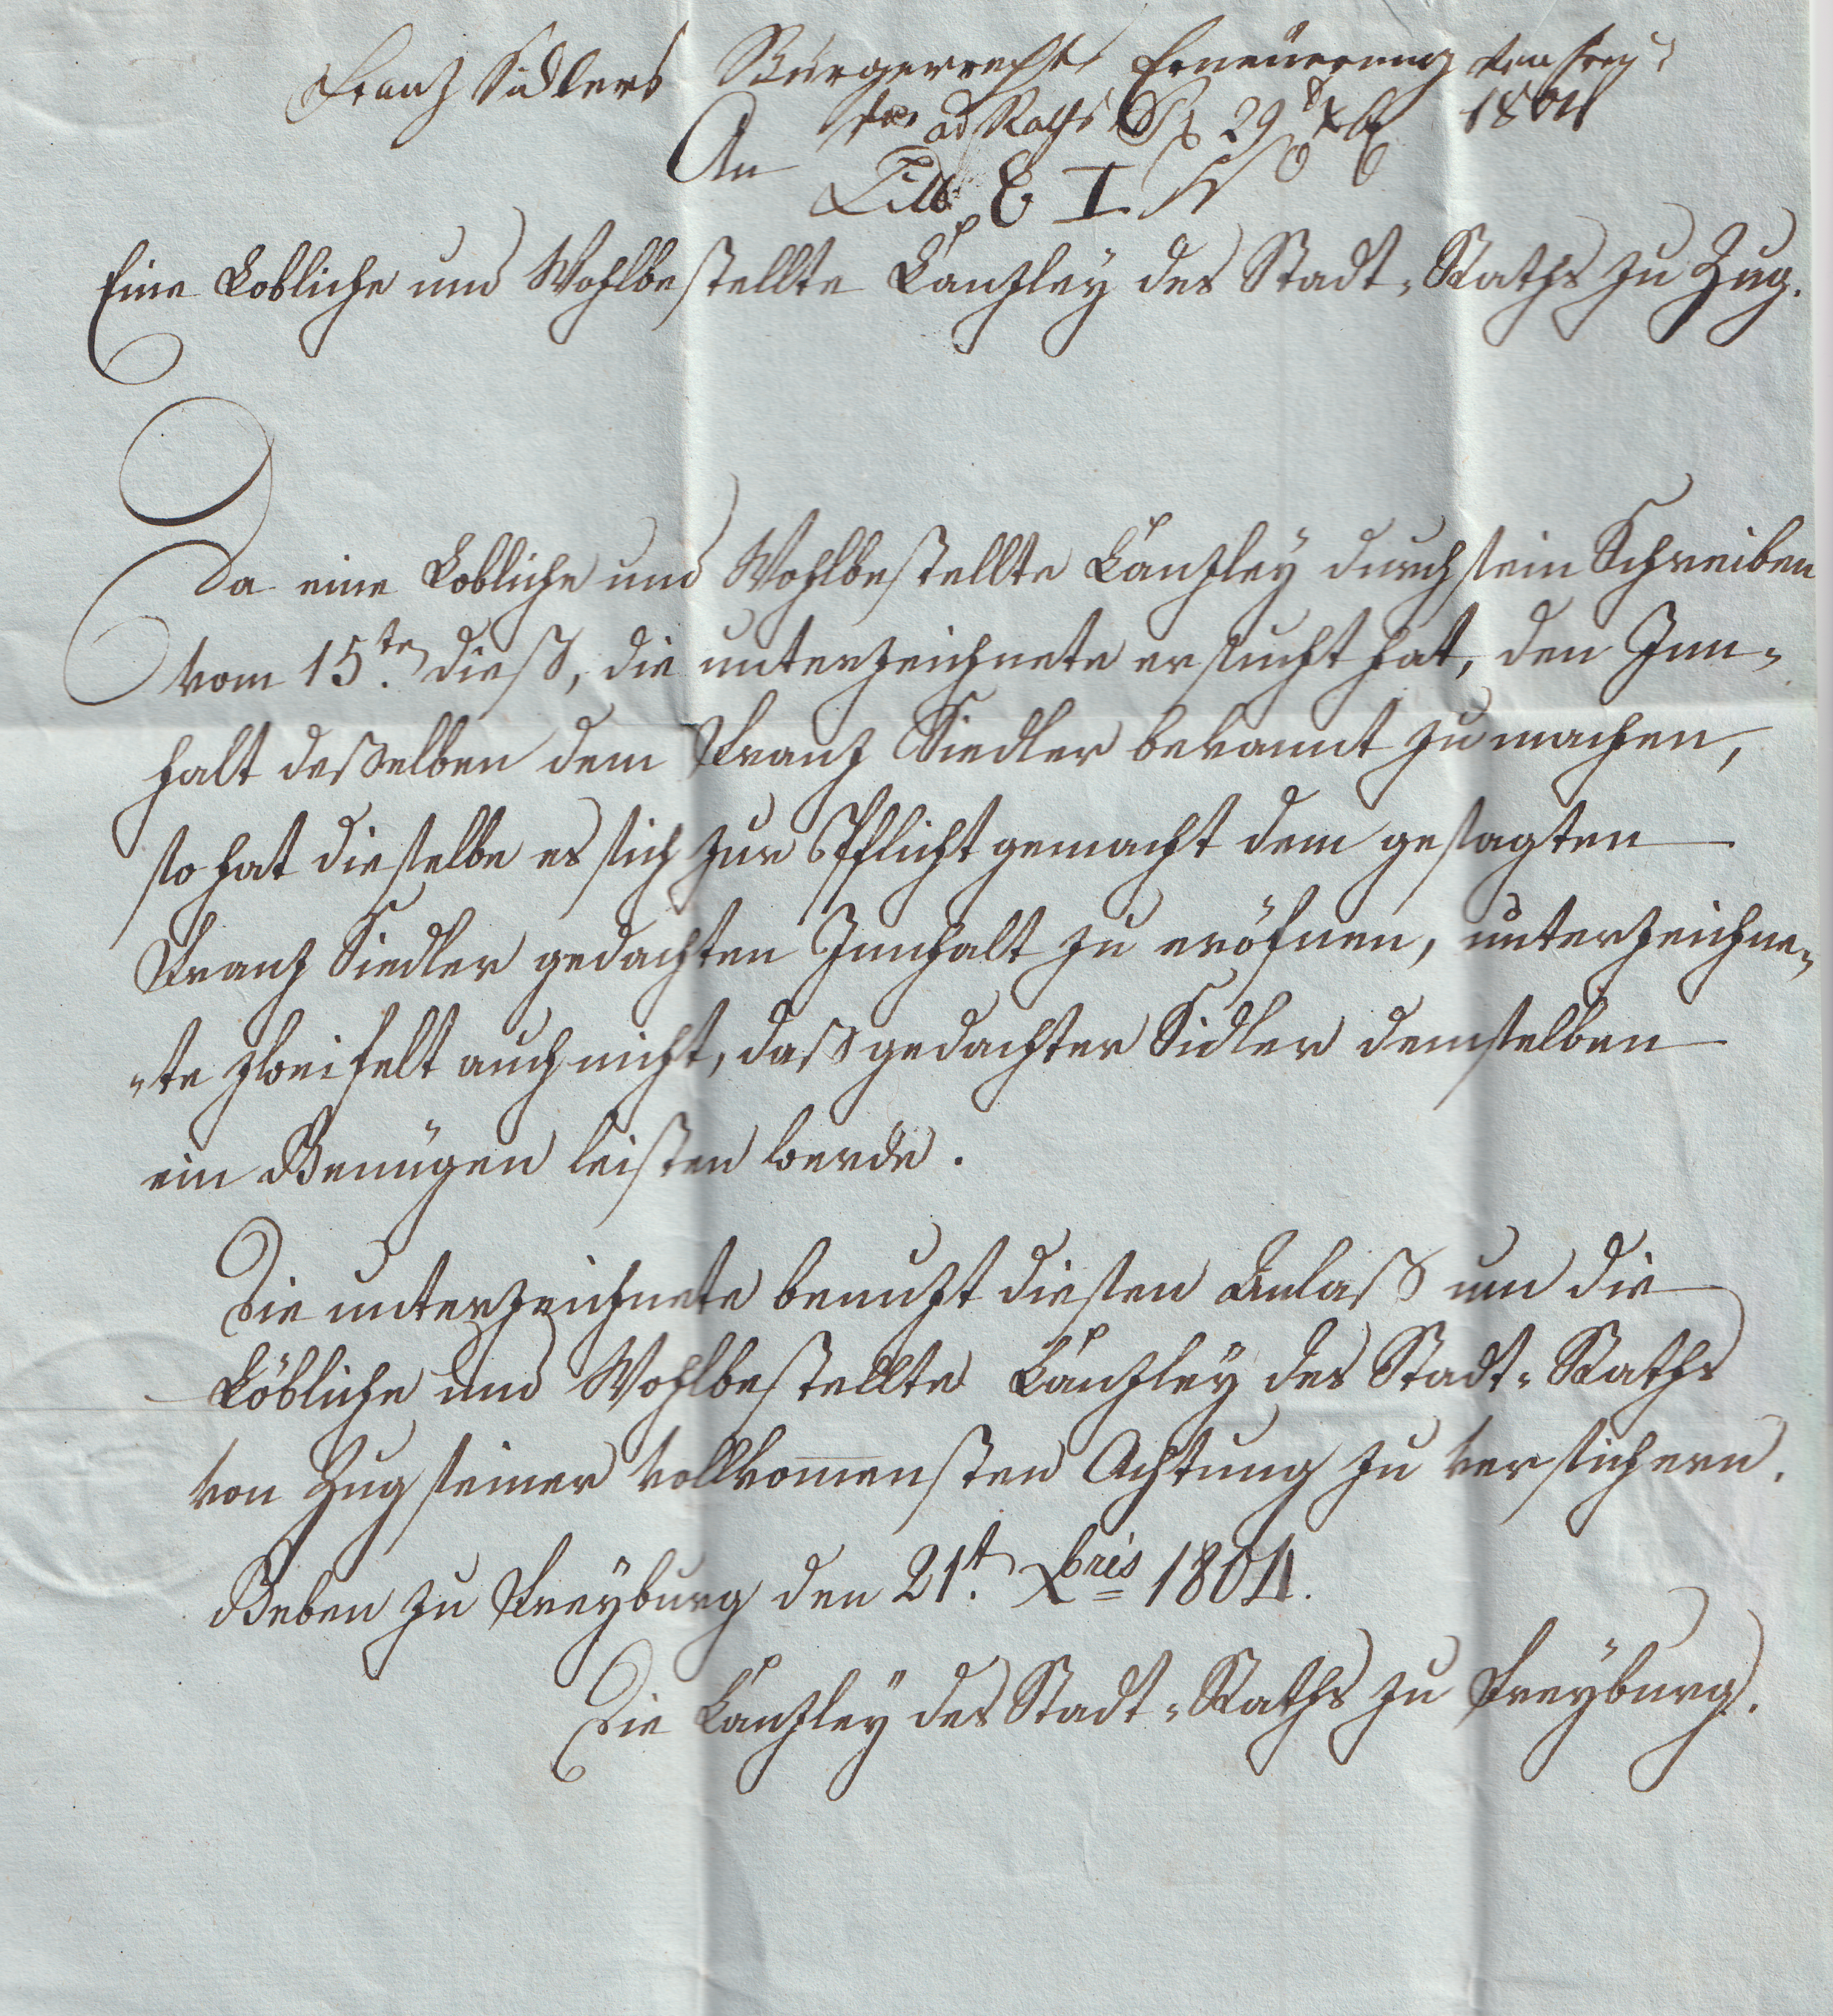 Franz Sidlers Bürgerrechts Erneüerung von frey¬
ad Raths 29 Xb 1804
An
Eine Lobliche und Wohlbestellte Canzley des Stadt-Raths zu Zug.
Da eine Lobliche und Wohlbestellte Canzley durch sein Schreiben
vom 15.ten dieß, die unterzeichnete ersucht hat, den Inn-
halt deßelben dem Franz Siedler bekannt zu machen,
so hat dieselbe es sich zur Pflicht gemacht dem gesagten
Franz Siedler gedachten Innhalt zu eröfnen, unterzeichne-
-te zweifelt auch nicht, daß gedachter Sidler demselben
ein Genügen leisten werde.
Die unterzeichnete benutzt diesen Anlaß um die
Löbliche und Wohlbestellte Canzley des Stadt-Raths
von Zug seiner vollkom̅ensten Achtung zu versichern.
Geben zu Freyburg den 21.t Xbris 1804.
Die Canzley des Stadt-Raths zu Freyburg.